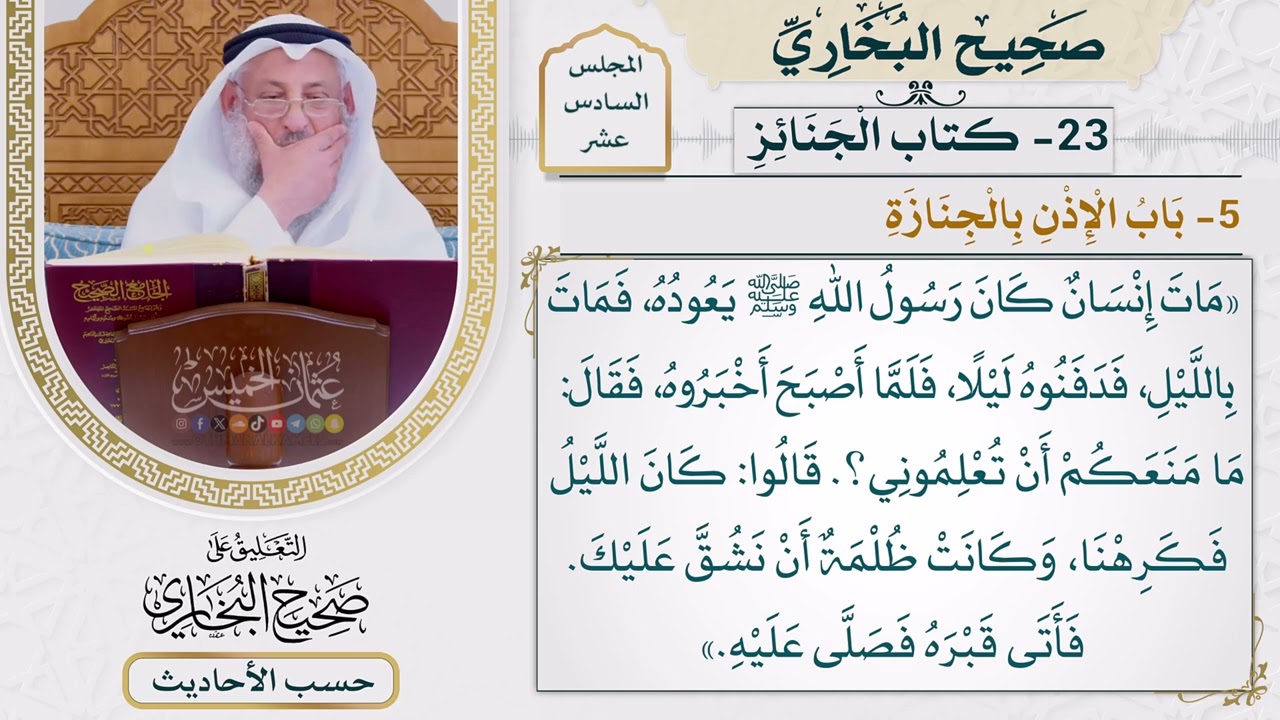 صَحِيح البُخَارِيِّ
23- كتاب الْجَنَائِزِ
المجلس
السادس
عشر
5- بَابُ الْإِذْنِ بِالْجِنَازَةِ
«مَاتَ إِنْسَانٌ كَانَ رَسُولُ اللهِ ﷺ يَعُودُهُ، فَمَاتَ
بِاللَّيْلِ، فَدَفَنُوهُ لَيْلًا، فَلَمَّا أَصْبَحَ أَخْبَرُوهُ، فَقَالَ:
مَا مَنَعَكُمْ أَنْ تُعْلِمُونِي؟. قَالُوا: كَانَ اللَّيْلُ
فَكَرِهْنَا، وَكَانَتْ ظُلْمَةٌ أَنْ نَشُقَّ عَلَيْكَ.
فَأَتَى قَبْرَهُ فَصَلَّى عَلَيْهِ.»
الجامع الصحيح
عثمان الخميس
التَّعْلِيقُ عَلَى
صَحِيحِ البُخَارِي
حسب الأحاديث